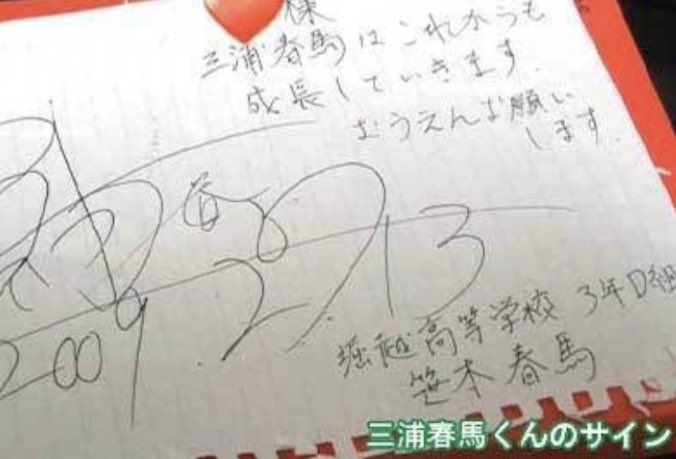 様
三浦春馬はこれからも
成長していきます.
おうえんお願い
します.
2009.2.13
堀越高等学校 3年D組
笹本春馬
三浦春馬くんのサイン